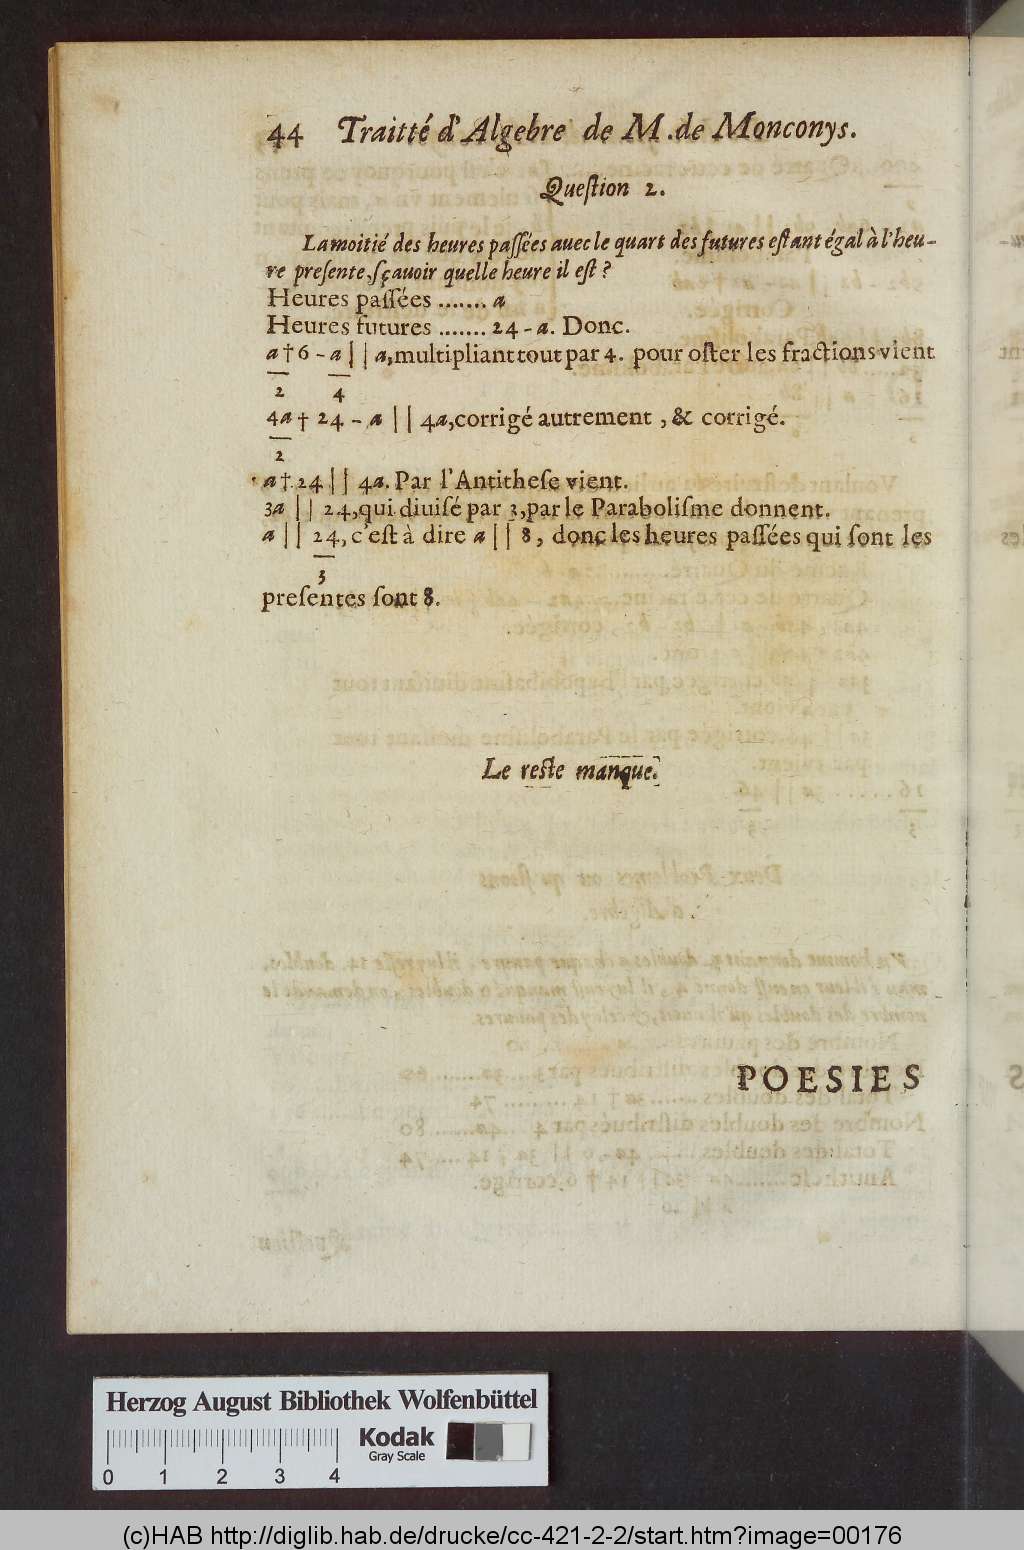 44 Traitté d'Algebre de M. de Monconys.
Queſtion 2.
La moitié des heures paſſées auec le quart des futures eſtant égal à l'heu-
re preſente, ſçauoir quelle heure il eſt ?
Heures paſſées ....... a
Heures futures ....... 24 - a. Donc.
a † 6 - a || a, multipliant tout par 4. pour oſter les fractions vient
2 4
4a † 24 - a || 4a, corrigé autrement, & corrigé.
2
a † 24 || 4a. Par l'Antitheſe vient.
3a || 24, qui diuiſé par 3, par le Paraboliſme donnent.
a || 24, c'eſt à dire a || 8, donc les heures paſſées qui ſont les
3
preſentes ſont 8.
Le reſte manque.
POESIES
Herzog August Bibliothek Wolfenbüttel
Kodak
Gray Scale
0 1 2 3 4
(c)HAB http://diglib.hab.de/drucke/cc-421-2-2/start.htm?image=00176